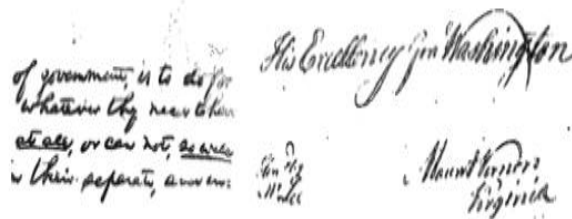 of government, is to do for
whatever they need to have
at all, or can not, so well
their separate, and
His Excellency Gen Washington
Mount Vernon
Virginia